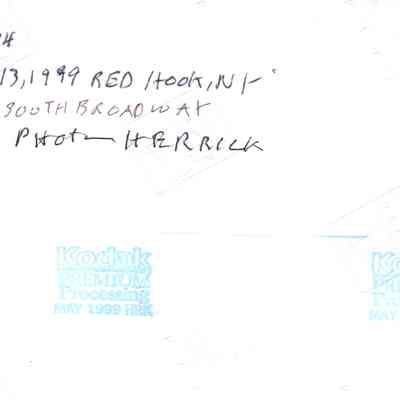 13, 1999 RED HOOK, NY
SOUTH BROADWAY
PHOTO HERRICK
Kodak
PREMIUM
Processing
MAY 1999 HRK
Kod
MAY